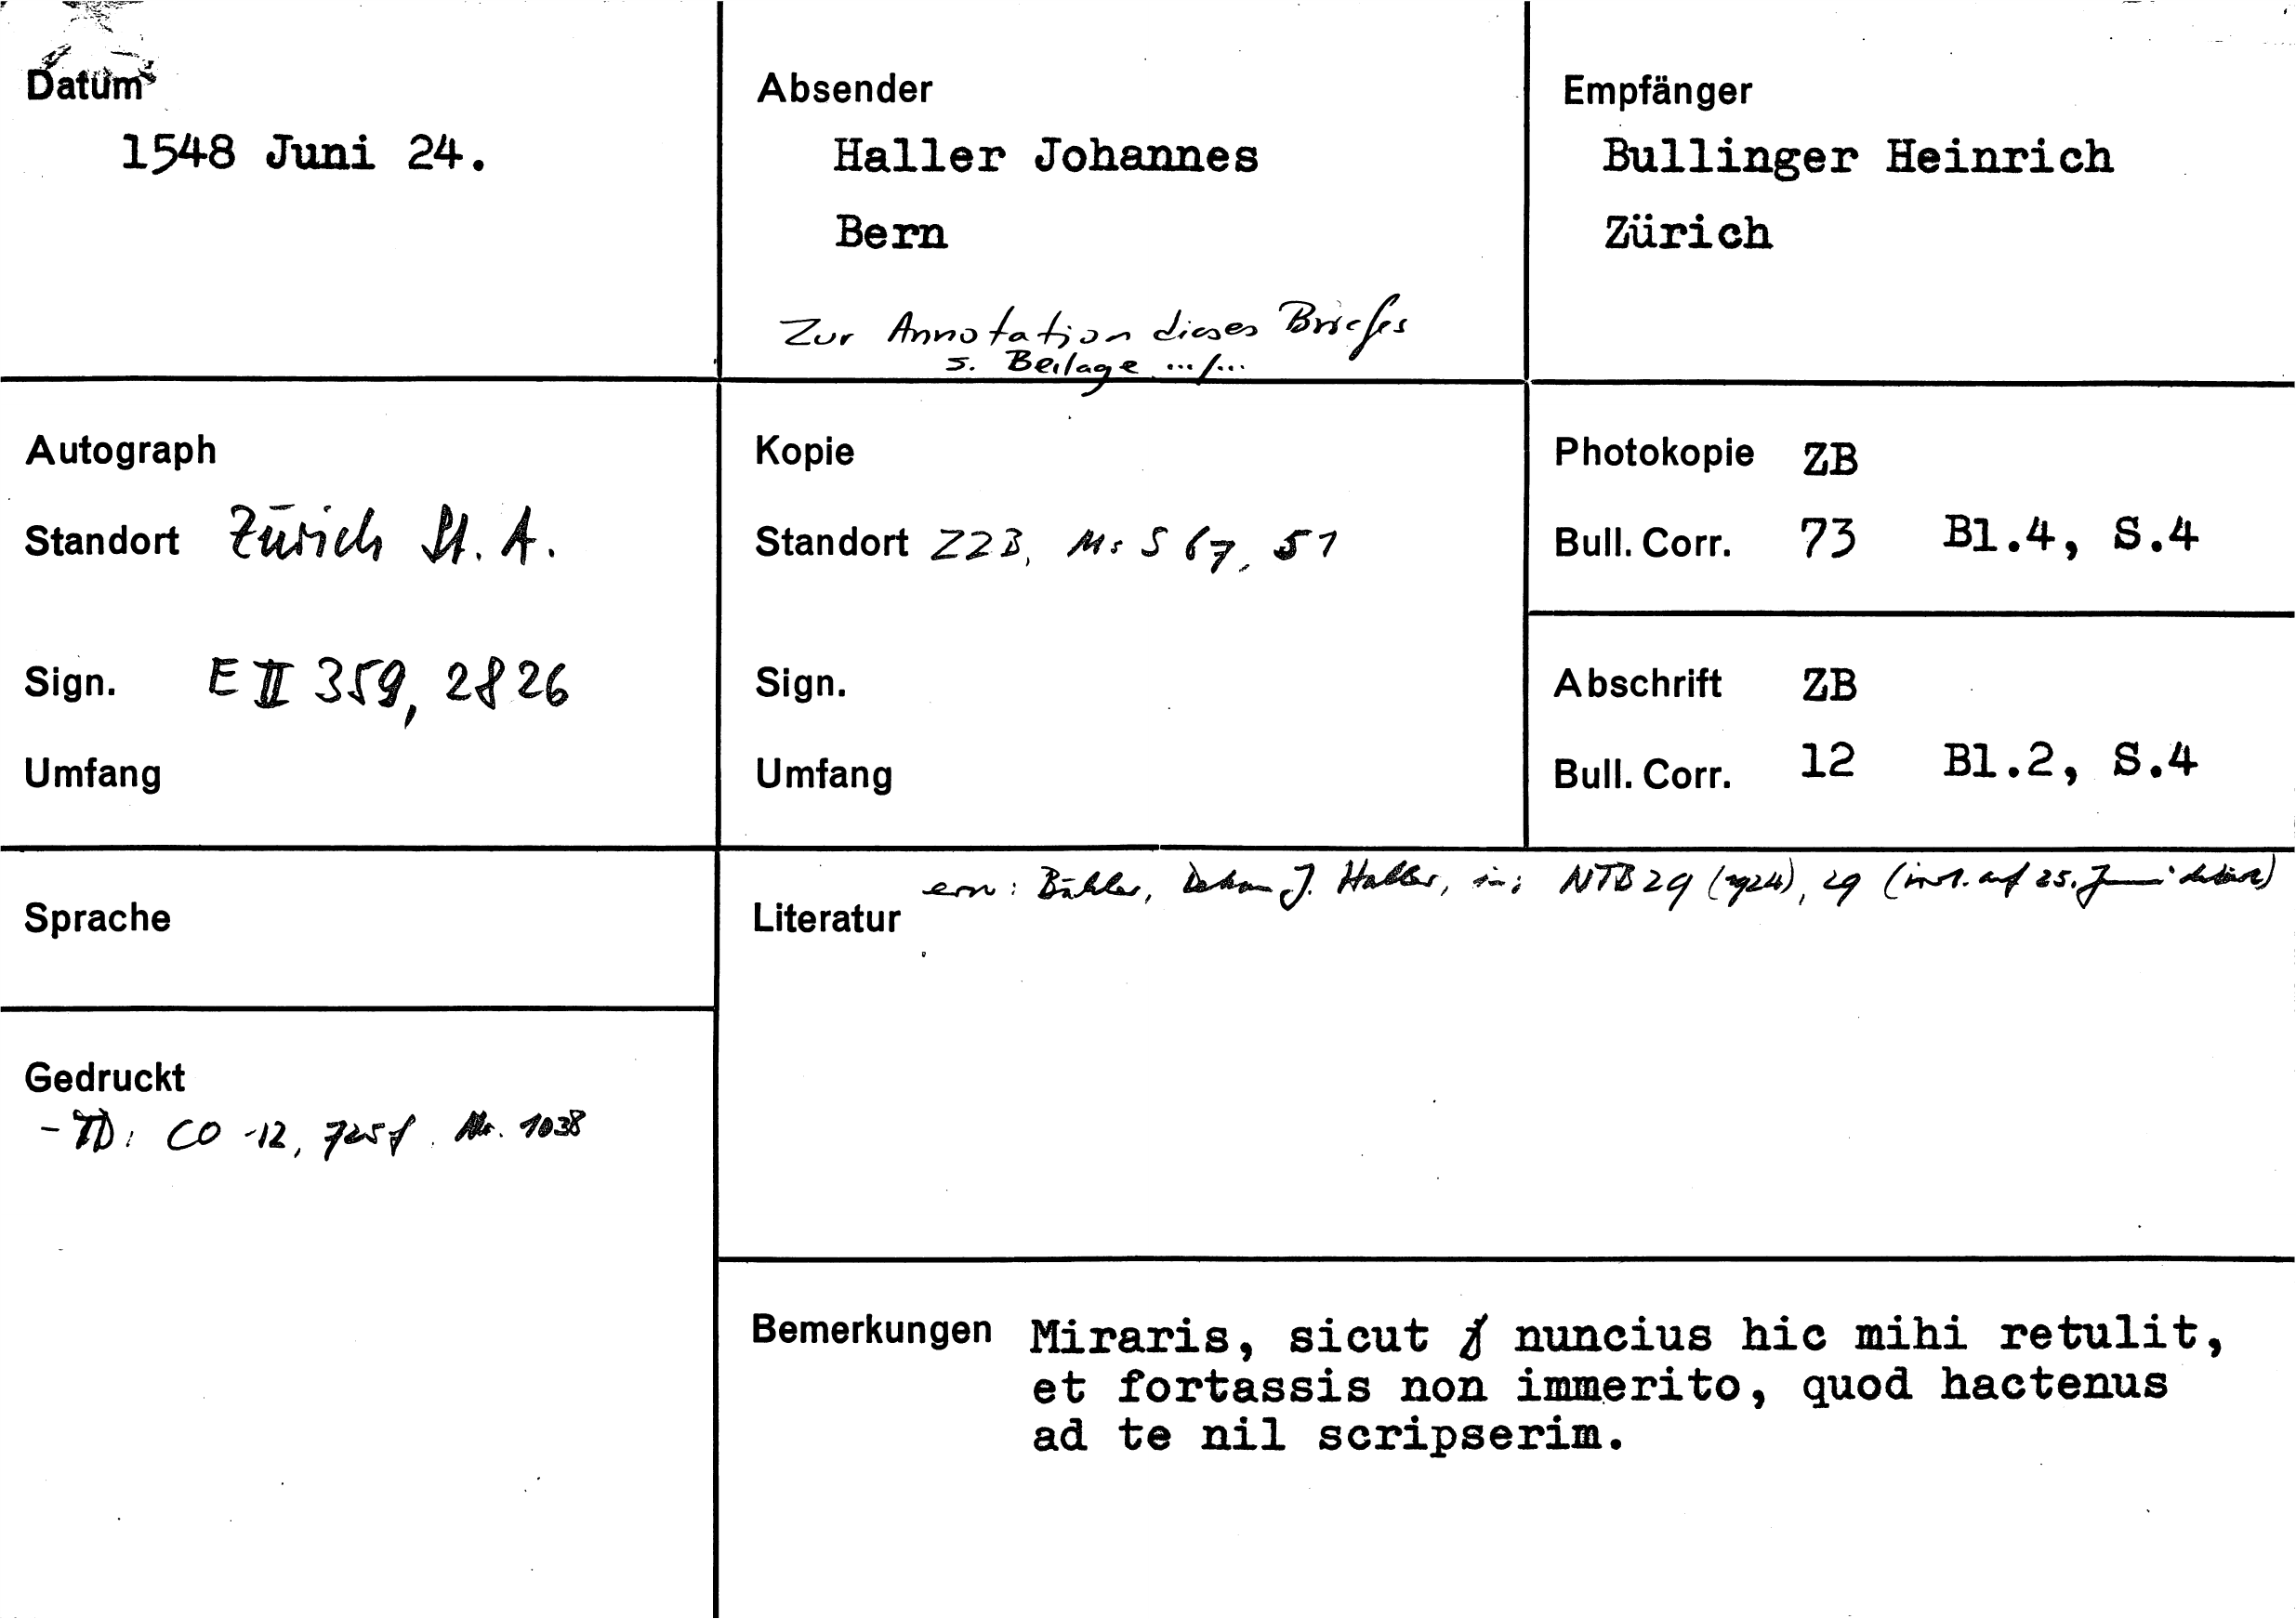 Datum
1548 Juni 24.
Absender
Haller Johannes
Bern
Zur Annotation dieses Briefes
s. Beilage .../...
Empfänger
Bullinger Heinrich
Zürich
Autograph
Standort Zürich St. A.
Sign. E II 359, 2826
Umfang
Kopie
Standort ZZB, Ms S 67, 51
Sign.
Umfang
Photokopie ZB
Bull. Corr. 73 Bl.4, S.4
Abschrift ZB
Bull. Corr. 12 Bl.2, S.4
Sprache
Gedruckt
- TD: CO 12, 725f. Nr. 1038
Literatur
erw: Bähler, Dekan J. Haller, in: NTB 29 (1924), 29 (irrt. auf 25. Juni datiert)
Bemerkungen Miraris, sicut nuncius hic mihi retulit,
et fortassis non immerito, quod hactenus
ad te nil scripserim.